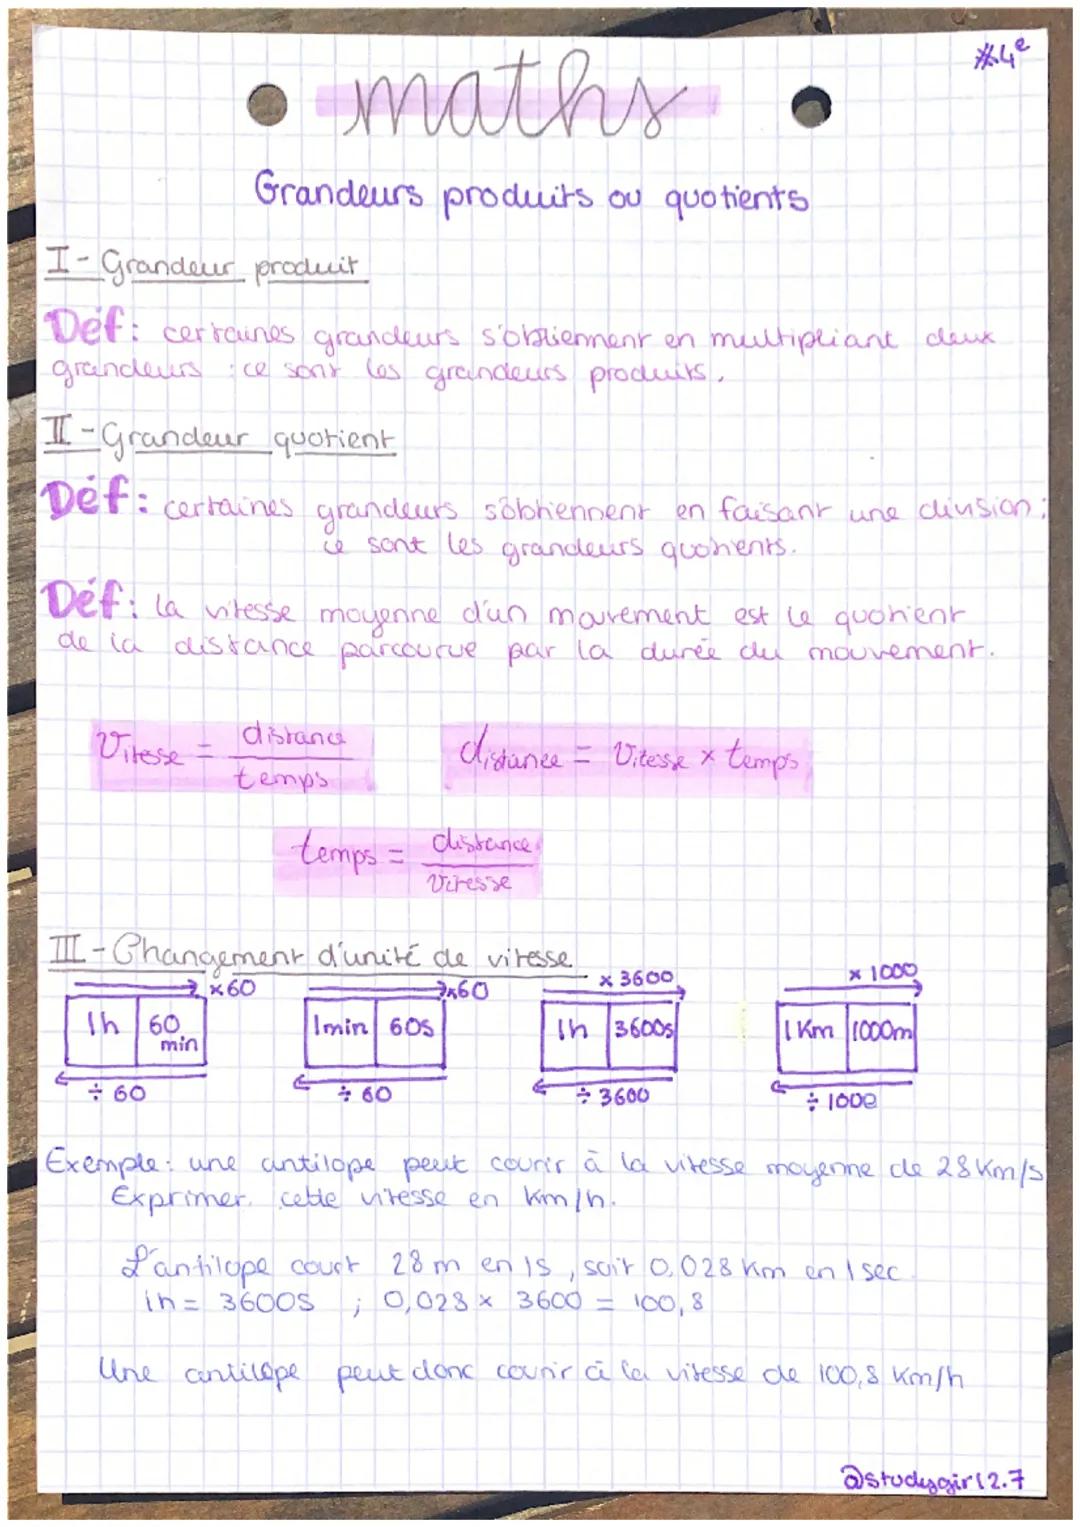 #4e
maths
Grandeurs produits ou quotients
I - Grandeur produit
Déf: certaines grandeurs s'obtiennent en multipliant deux
grandeurs : ce sont les grandeurs produits.
II - Grandeur quotient
Déf: certaines grandeurs s'obtiennent en faisant une division :
ce sont les grandeurs quotients.
Déf: la vitesse moyenne d'un mouvement est le quotient
de la distance parcourue par la durée du mouvement.
Vitesse = distance / temps
distance = Vitesse × temps
temps = distance / Vitesse
III - Changement d'unité de vitesse
×60 ×60 ×3600 ×1000
1h 60 min 1min 60s 1h 3600s 1Km 1000m
÷60 ÷60 ÷3600 ÷1000
Exemple: une antilope peut courir à la vitesse moyenne de 28 Km/s
Exprimer cette vitesse en Km/h.
L'antilope court 28 m en 1s, soit 0,028 Km en 1 sec.
1h = 3600s ; 0,028 × 3600 = 100,8
Une antilope peut donc courir à la vitesse de 100,8 Km/h
@studygirl2.7